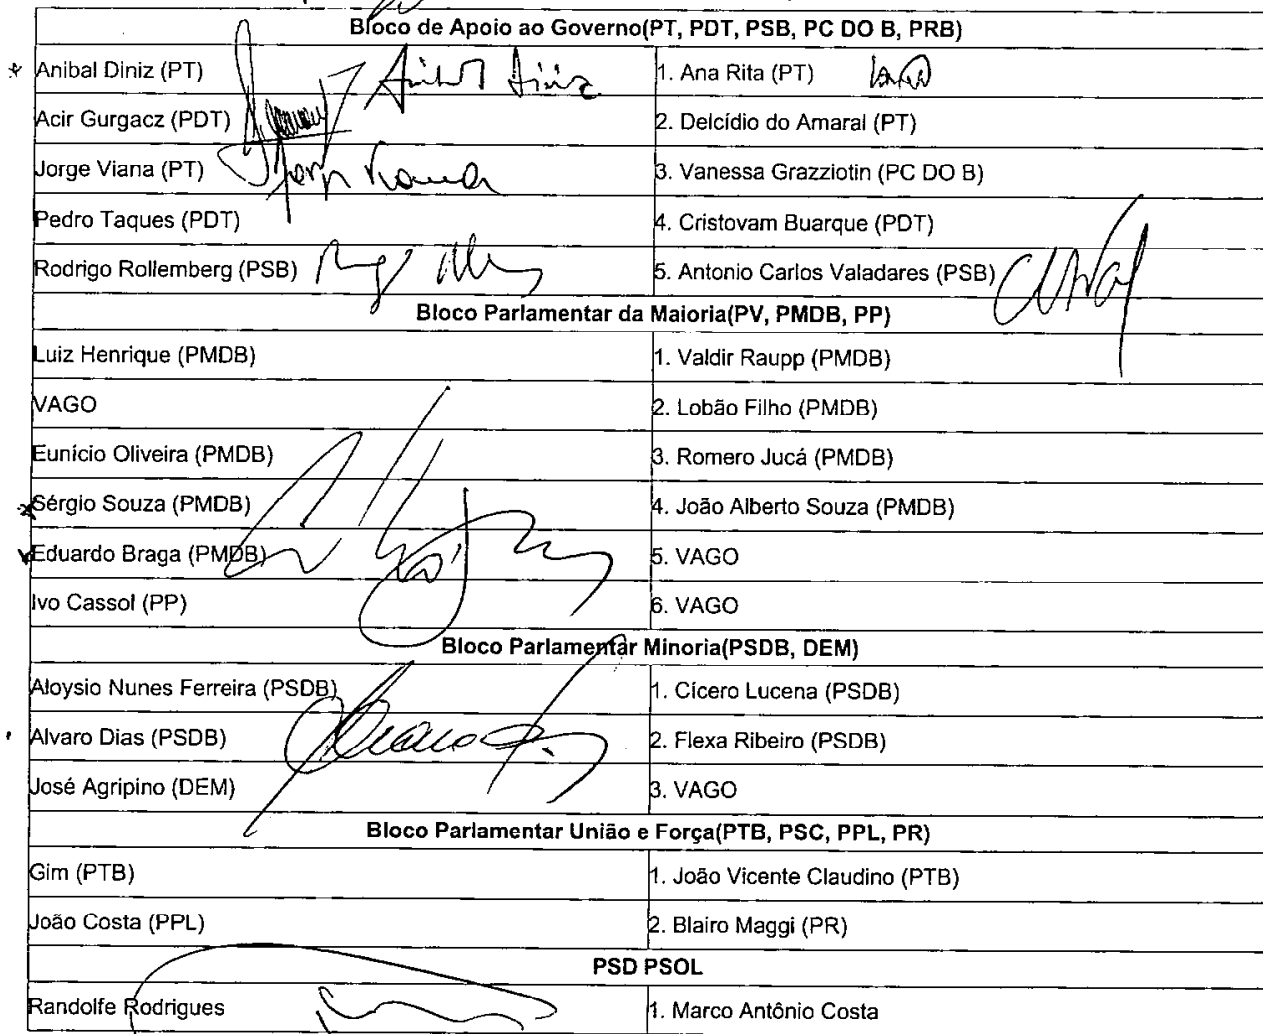 Bloco de Apoio ao Governo(PT, PDT, PSB, PC DO B, PRB)
Anibal Diniz (PT) Anibal Diniz 1. Ana Rita (PT)
Acir Gurgacz (PDT) 2. Delcídio do Amaral (PT)
Jorge Viana (PT) 3. Vanessa Grazziotin (PC DO B)
Pedro Taques (PDT) 4. Cristovam Buarque (PDT)
Rodrigo Rollemberg (PSB) 5. Antonio Carlos Valadares (PSB)
Bloco Parlamentar da Maioria(PV, PMDB, PP)
Luiz Henrique (PMDB) 1. Valdir Raupp (PMDB)
VAGO 2. Lobão Filho (PMDB)
Eunício Oliveira (PMDB) 3. Romero Jucá (PMDB)
Sérgio Souza (PMDB) 4. João Alberto Souza (PMDB)
Eduardo Braga (PMDB) 5. VAGO
Ivo Cassol (PP) 6. VAGO
Bloco Parlamentar Minoria(PSDB, DEM)
Aloysio Nunes Ferreira (PSDB) 1. Cícero Lucena (PSDB)
Alvaro Dias (PSDB) 2. Flexa Ribeiro (PSDB)
José Agripino (DEM) 3. VAGO
Bloco Parlamentar União e Força(PTB, PSC, PPL, PR)
Gim (PTB) 1. João Vicente Claudino (PTB)
João Costa (PPL) 2. Blairo Maggi (PR)
PSD PSOL
Randolfe Rodrigues 1. Marco Antônio Costa